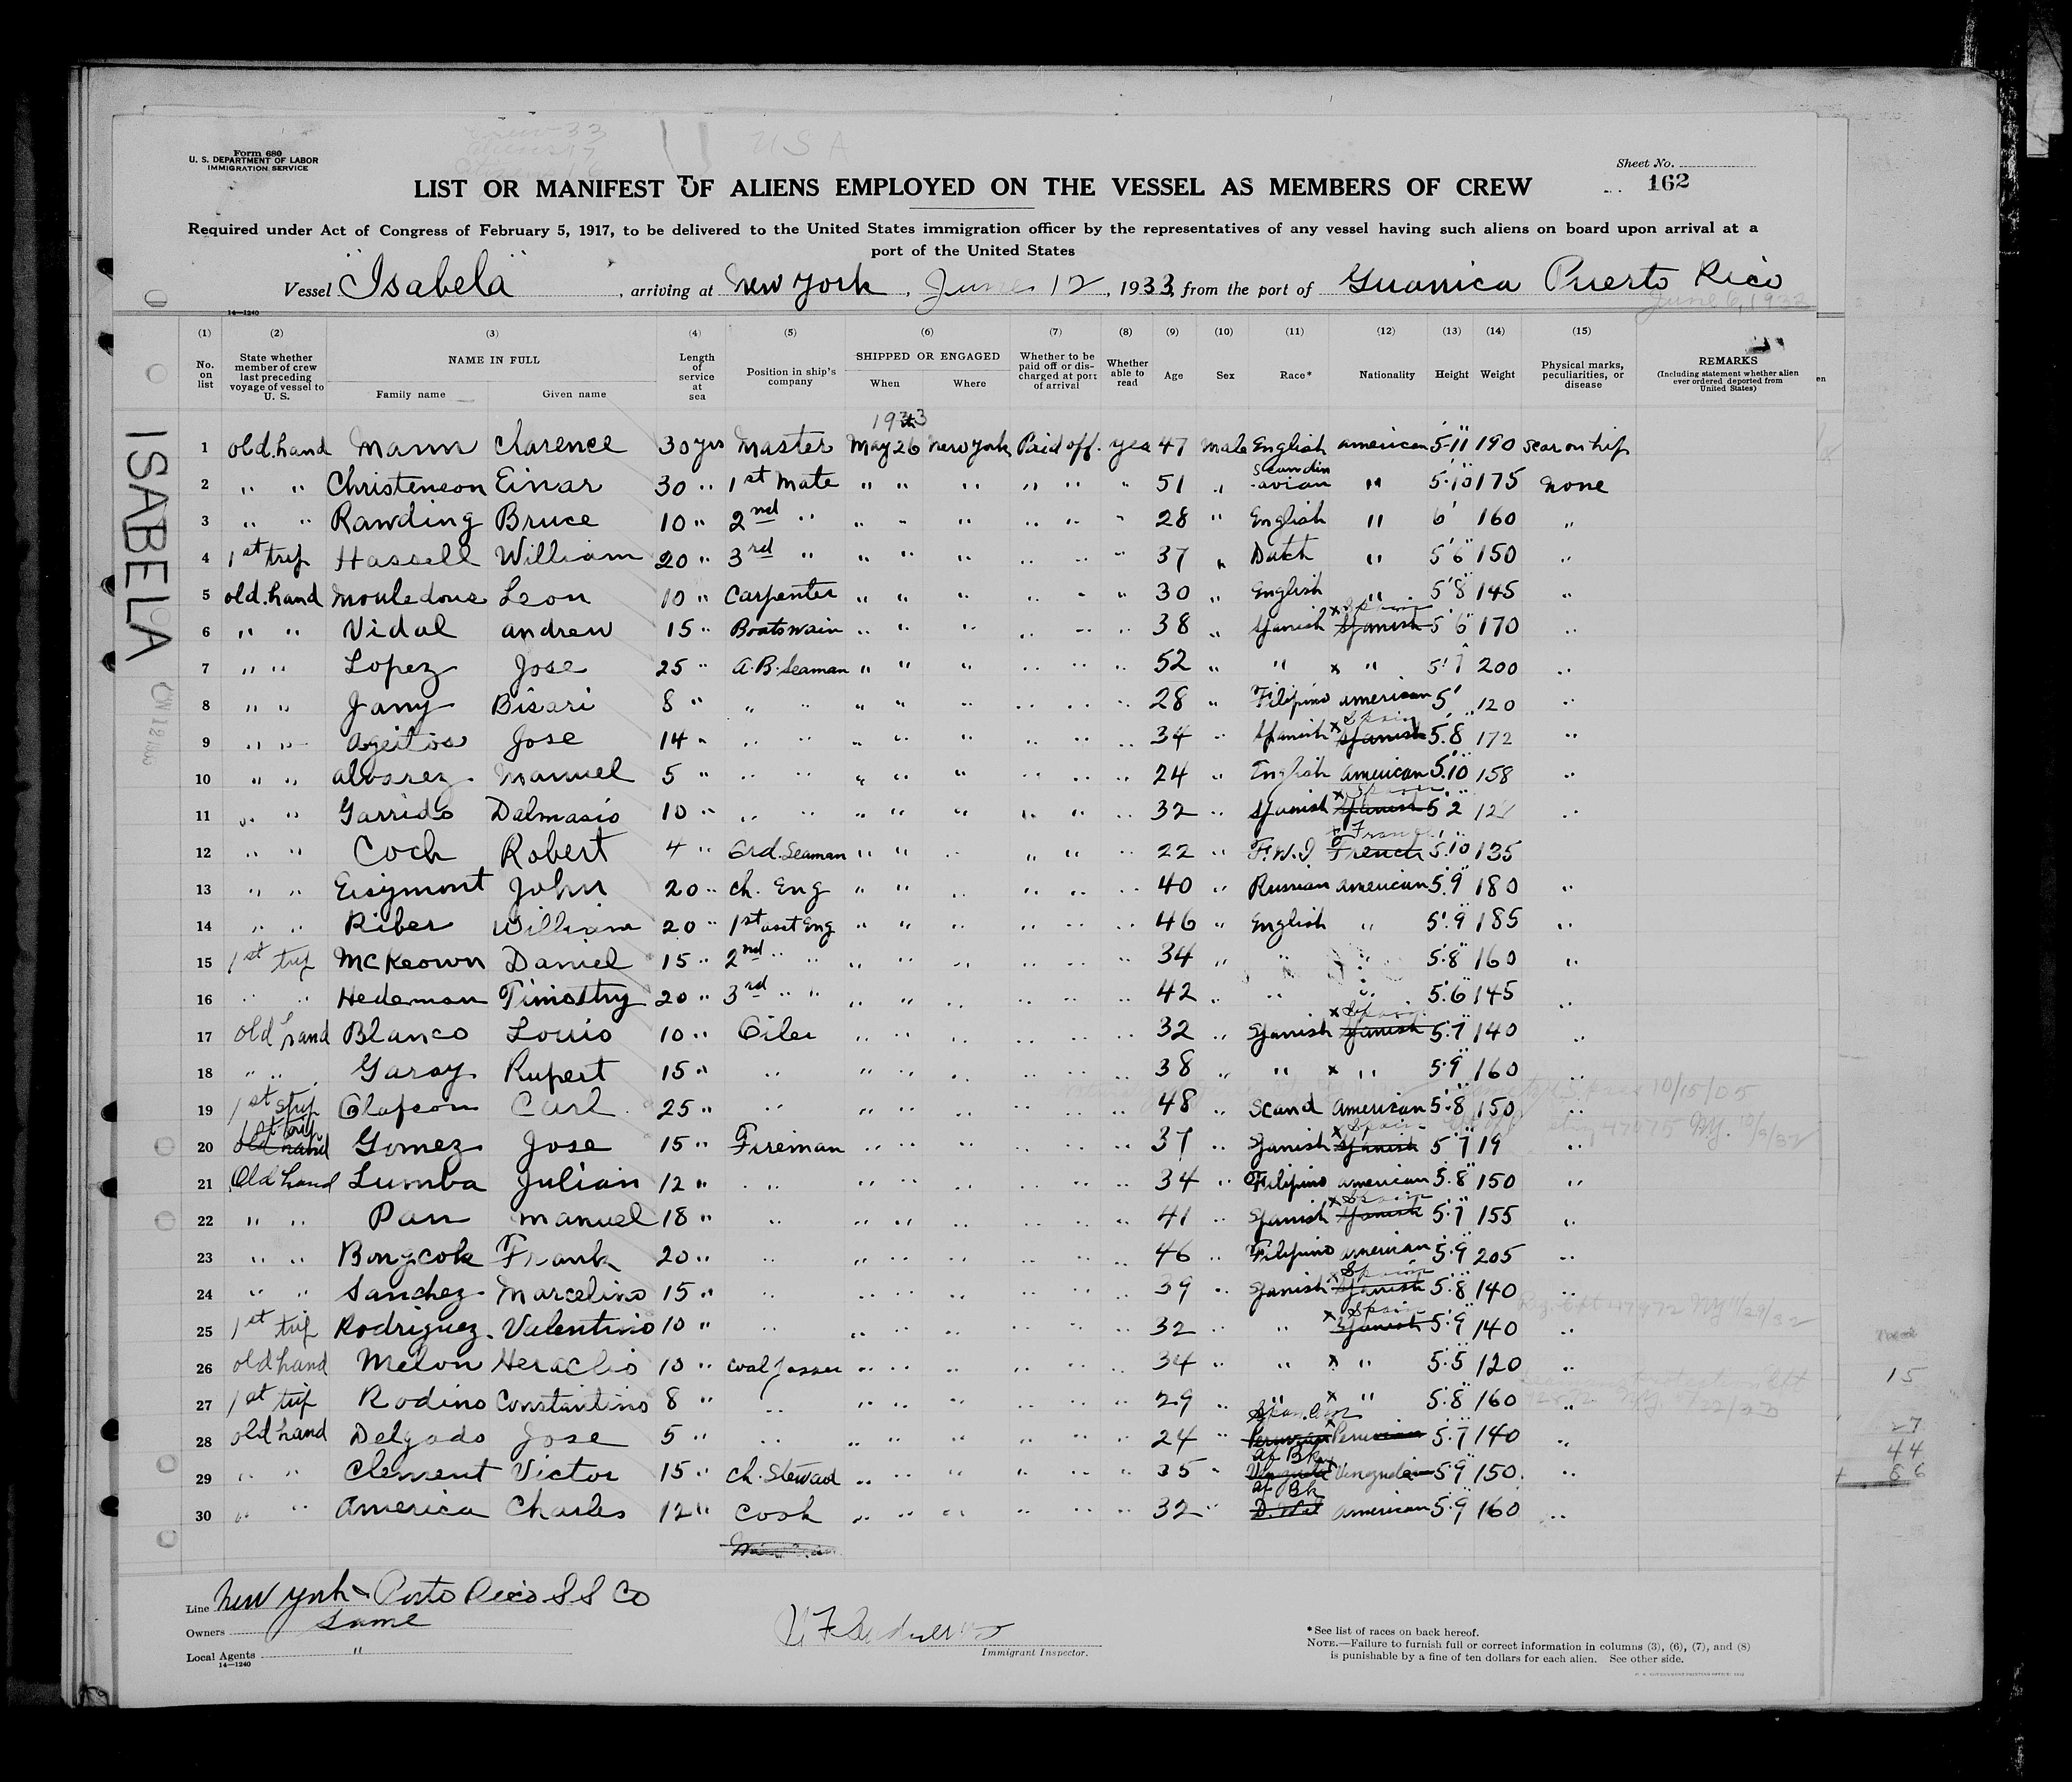 Form 680
U. S. DEPARTMENT OF LABOR
IMMIGRATION SERVICE
U S A
Sheet No.
162
LIST OR MANIFEST OF ALIENS EMPLOYED ON THE VESSEL AS MEMBERS OF CREW
Required under Act of Congress of February 5, 1917, to be delivered to the United States immigration officer by the representatives of any vessel having such aliens on board upon arrival at a
port of the United States
Vessel "Isabela", arriving at New York, June 12, 1933, from the port of Guanica Puerto Rico
June 6, 1933
14—1240
(1) (2) (3) (4) (5) (6) (7) (8) (9) (10) (11) (12) (13) (14) (15)
No. on list
State whether member of crew last preceding voyage of vessel to U. S.
NAME IN FULL
Family name
Given name
Length of service at sea
Position in ship's company
SHIPPED OR ENGAGED
When
Where
Whether to be paid off or discharged at port of arrival
Whether able to read
Age
Sex
Race*
Nationality
Height
Weight
Physical marks, peculiarities, or disease
REMARKS
(Including statement whether alien ever ordered deported from United States)
ISABELA
1933
1 old hand Mann Clarence 30 yrs Master May 26 New York Paid off. yes 47 male English American 5-11 190 Scar on hip
2 " " Christenson Einar 30 " 1st Mate " " " " " " 51 " Scandinavian " 5'10 175 none
3 " " Rawding Bruce 10 " 2nd " " " " " " " 28 " English " 6' 160 "
4 1st trip Hassell William 20 " 3rd " " " " " " " 37 " Dutch " 5'6 150 "
5 old hand Mouledous Leon 10 " Carpenter " " " " " " 30 " English " 5'8 145 "
6 " " Vidal Andrew 15 " Boatswain " " " " " " 38 " Spanish x Spain Spanish 5'6 170 "
7 " " Lopez Jose 25 " A.B. Seaman " " " " " " 52 " " x " 5'7 200 "
8 " " Jany Bisari 8 " " " " " " " " " 28 " Filipino American 5' 120 "
9 " " Ageitos Jose 14 " " " " " " " " " 34 " Spanish x Spain Spanish 5.8 172 "
10 " " Alvarez Manuel 5 " " " " " " " " " 24 " English American 5.10 158 "
11 " " Garrido Dalmasio 10 " " " " " " " " " 32 " Spanish x Spain Spanish 5'2 "
12 " " Coch Robert 4 " Ord. Seaman " " " " " " 22 " F.W.I x France French 5.10 135
13 " " Eisymont John 20 " Ch. Eng " " " " " " 40 " Russian American 5.9 180 "
14 " " Riber William 20 " 1st asst Eng " " " " " " 46 " English " 5'.9 185 "
15 1st trip McKeown Daniel 15 " 2nd " " " " " " " " 34 " " " 5.8 160 "
16 " " Hedeman Timothy 20 " 3rd " " " " " " " " 42 " " " 5.6 145 "
17 old hand Blanco Louis 10 " Oiler " " " " " " 32 " Spanish x Spain Spanish 5.7 140 "
18 " " Garay Rupert 15 " " " " " " " " 38 " " x " 5.9 160 "
19 1st trip Olafson Carl 25 " " " " " " " " 48 " Scand American 5.8 150 "
20 1st trip old hand Gomez Jose 15 " Fireman " " " " " " 37 " Spanish x Spain Spanish 5'7 19 "
21 Old hand Lumba Julian 12 " " " " " " " " " 34 " Filipino American 5.8 150 "
22 " " Pan Manuel 18 " " " " " " " " 41 " Spanish x Spain Spanish 5.7 155 "
23 " " Bongcok Frank 20 " " " " " " " " 46 " Filipino American 5.9 205 "
24 " " Sanchez Marcelino 15 " " " " " " " " 39 " Spanish x Spain Spanish 5.8 140 "
25 1st trip Rodriguez Valentino 10 " " " " " " " " 32 " " x Spain Spanish 5.9 140 "
26 old hand Melon Heraclio 10 " Coal Passer " " " " " " 34 " " x " 5.5 120 "
27 1st trip Rodino Constantino 8 " " " " " " " " 29 " " x " 5.8 160 "
28 old hand Delgado Jose 5 " " " " " " " " 24 " Span. Am Peruvian x Peruvian 5.7 140 "
29 " " Clement Victor 15 " Ch. Steward " " " " " " 35 " Af Bk 5.9 150 "
30 " " America Charles 12 " Cook " " " " " " 32 " Af Bk American 5.9 160 "
15
27
44
Line New York - Porto Rico S S Co
Owners Same
Local Agents "
14—1240
Immigrant Inspector.
*See list of races on back hereof.
NOTE.—Failure to furnish full or correct information in columns (3), (6), (7), and (8)
is punishable by a fine of ten dollars for each alien. See other side.